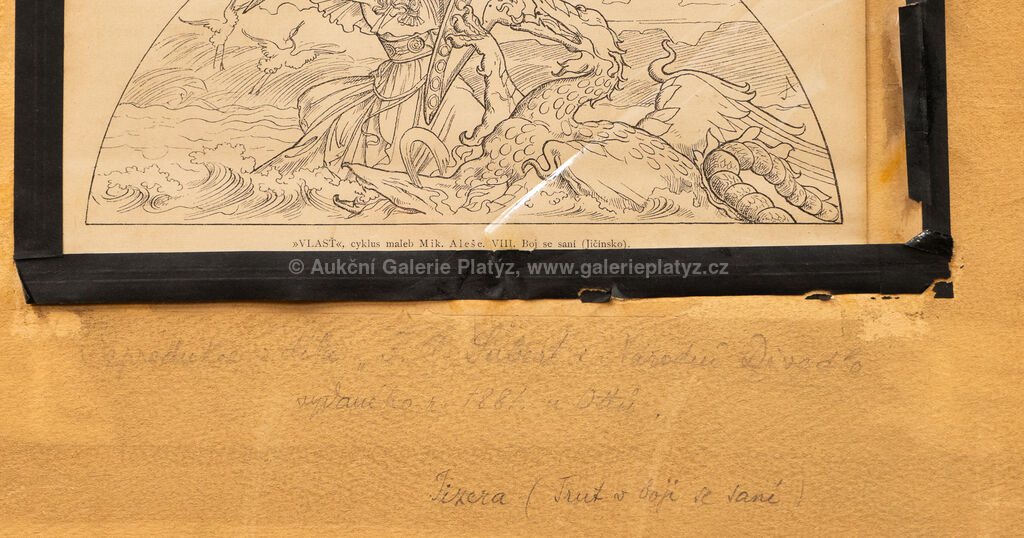 »VLASŤ«, cyklus maleb Mik. Aleše. VIII. Boj se saní (Jičínsko).
© Aukční Galerie Platýz, www.galerieplatyz.cz
Reprodukce z díla „F. A. Šubert : Národní Divadlo
vydaného r. 1881 u Ottů
Jizera ( Trut v boji se saní )